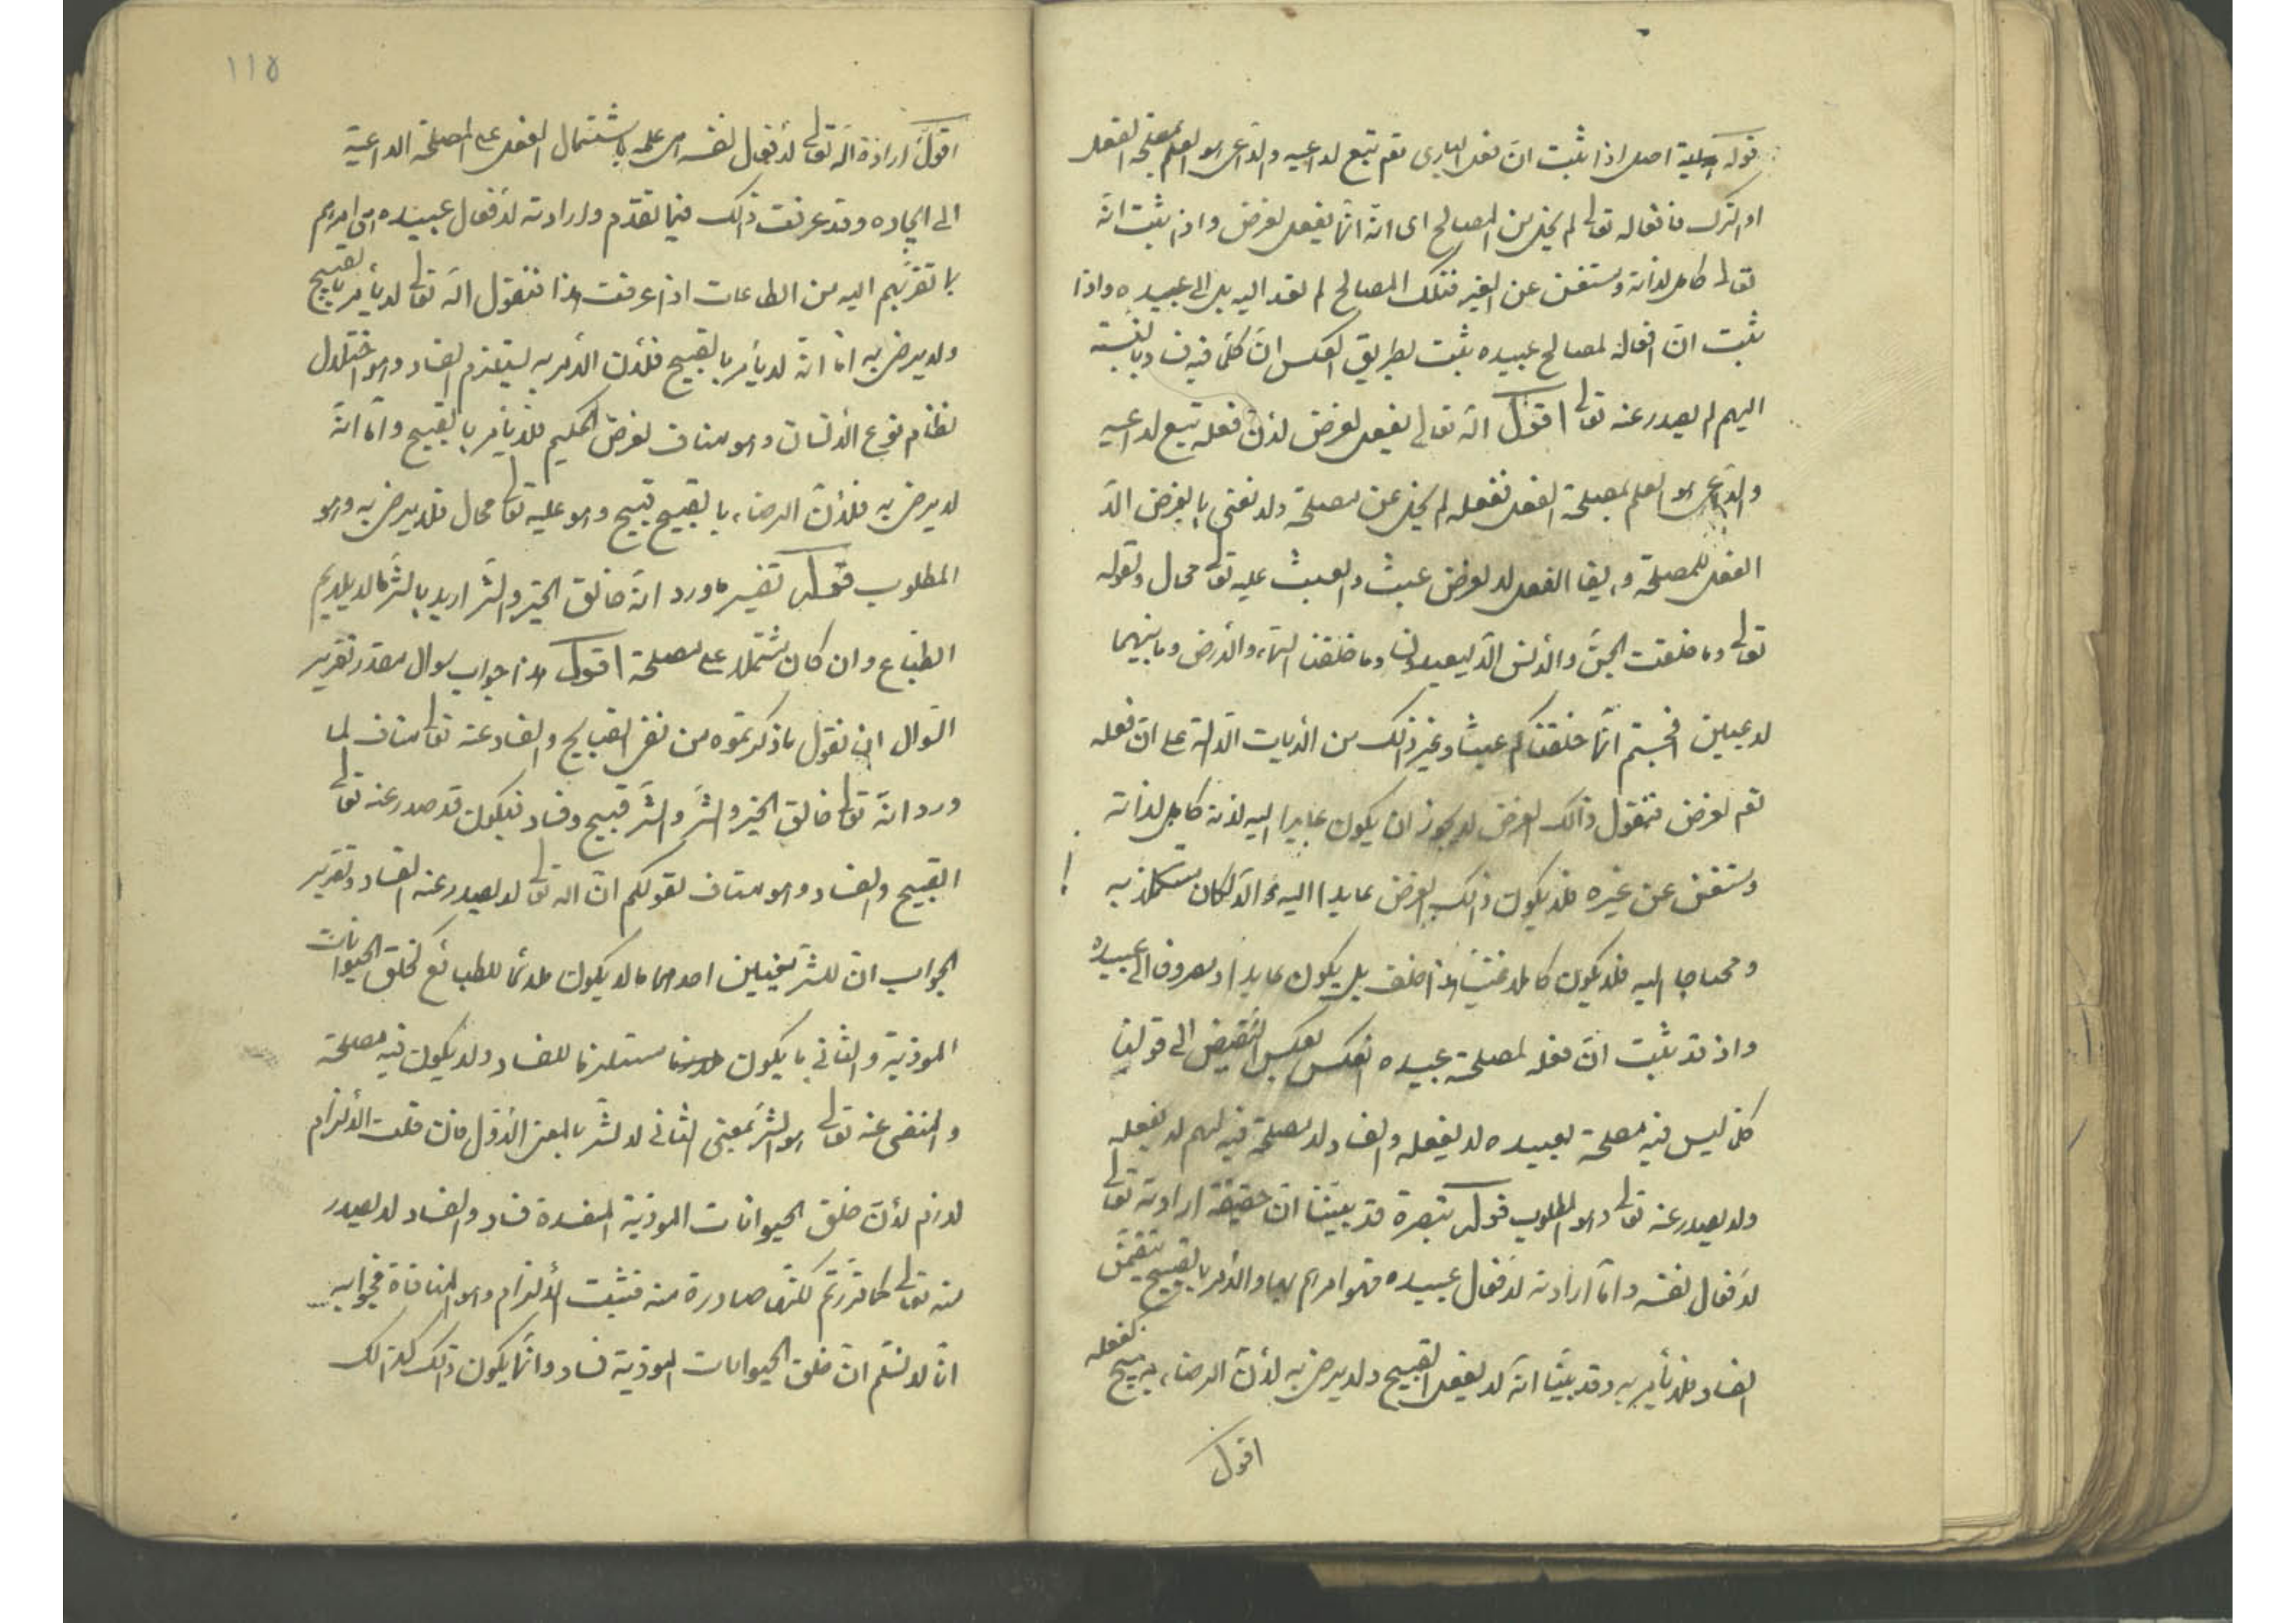 قوله اصل اذا ثبت ان فعل البارى تعم تبع لداعيه والداعى هو العلم بمصلحة الفعل
او الترك فافعاله تعالى لم يخل من المصالح اى انه انما يفعل لغرض واذ ثبت انه
تعالى كامل لذاته ومستغن عن الغير فتلك المصالح لم تعد اليه بل الى عبيده واذا
ثبت ان افعاله لمصالح عبيده ثبت بطريق العكس ان كلما فيه فساد بالنسبة
اليهم لم يصدر عنه تعالى اقول انه تعالى يفعل لغرض لان فعله تبع لداعيه
والداعى هو العلم بمصلحة الفعل ففعله لم يخل عن مصلحة ولا نعنى بالغرض الا
الفعل للمصلحة وايضا الفعل لا لغرض عبث والعبث عليه تعالى محال ولقوله
تعالى وما خلقت الجن والانس الا ليعبدون وما خلقنا السماء والارض وما بينهما
لاعبين افحسبتم انما خلقناكم عبثا وغير ذلك من الايات الدالة على ان فعله
تعم لغرض فنقول ذلك الغرض لا يجوز ان يكون عايدا اليه لانه كامل لذاته
ومستغن عن غيره فلا يكون ذلك الغرض عايدا اليه والا لكان مستكملا به
ومحتاجا اليه فلا يكون كاملا غنيا هذا خلف بل يكون عايدا ومصروفا الى عبيده
واذ قد ثبت ان فعله لمصلحة عبيده انعكس بعكس النقيض الى قولنا
كل ليس فيه مصلحة لعبيده لا يفعله والفساد لا مصلحة فيه لهم لا يفعله
ولا يصدر عنه تعالى وهو المطلوب قوله تبصرة قد بينا ان حقيقة ارادته تعالى
لافعال نفسه واما ارادته لافعال عبيده فهو امرهم بها والامر بالقبيح يتضمن
الفساد فلا يأمر به وقد بينا انه لا يفعل القبيح ولا يرضى به لان الرضاء به قبيح كفعله
اقول
١١٥
اقول ارادة الله تعالى لافعال نفسه هى علمه باشتمال الفعل على المصلحة الداعية
الى ايجاده وقد عرفت ذلك فيما تقدم وارادته لافعال عبيده هى امرهم
بما تقربهم اليه من الطاعات اذا عرفت هذا فنقول انه تعالى لا يأمر بالقبيح
ولا يرضى به اما انه لا يأمر بالقبيح فلان الامر به يستلزم الفساد وهو اختلال
نظام نوع الانسان وهو مناف لغرض الحكيم فلا يأمر بالقبيح واما انه
لا يرضى به فلان الرضاء بالقبيح قبيح وهو عليه تعالى محال فلا يرضى به وهو
المطلوب قوله تفسير ما ورد انه خالق الخير والشر اريد بالشر ما لا يلايم
الطباع وان كان مشتملا على مصلحة اقول هذا جواب سوال مقدر تقرير
السوال ان نقول ما ذكرتموه من نفى القبايح والفساد عنه تعالى مناف لما
ورد انه تعالى خالق الخير والشر والشر قبيح وفساد فيكون قد صدر عنه تعالى
القبيح والفساد وهو مناف لقولكم ان الله تعالى لا يصدر عنه الفساد وتقرير
الجواب ان للشر معنيين احدهما ما لا يكون ملائما للطبائع كخلق الحيوانات
الموذية والثانى ما يكون مستلزما للفساد ولا يكون فيه مصلحة
والمنفى عنه تعالى هو الشر بمعنى الثانى لا الشر بالمعنى الاول فان قلت الالزام
لازم لان خلق الحيوانات الموذية المفسدة فساد والفساد لا يصدر
منه تعالى كما قررتم لكنها صادرة منه فثبت الالزام وهو المنافاة فجوابه
انا لا نسلم ان خلق الحيوانات الموذية فساد وانما يكون ذلك كذلك